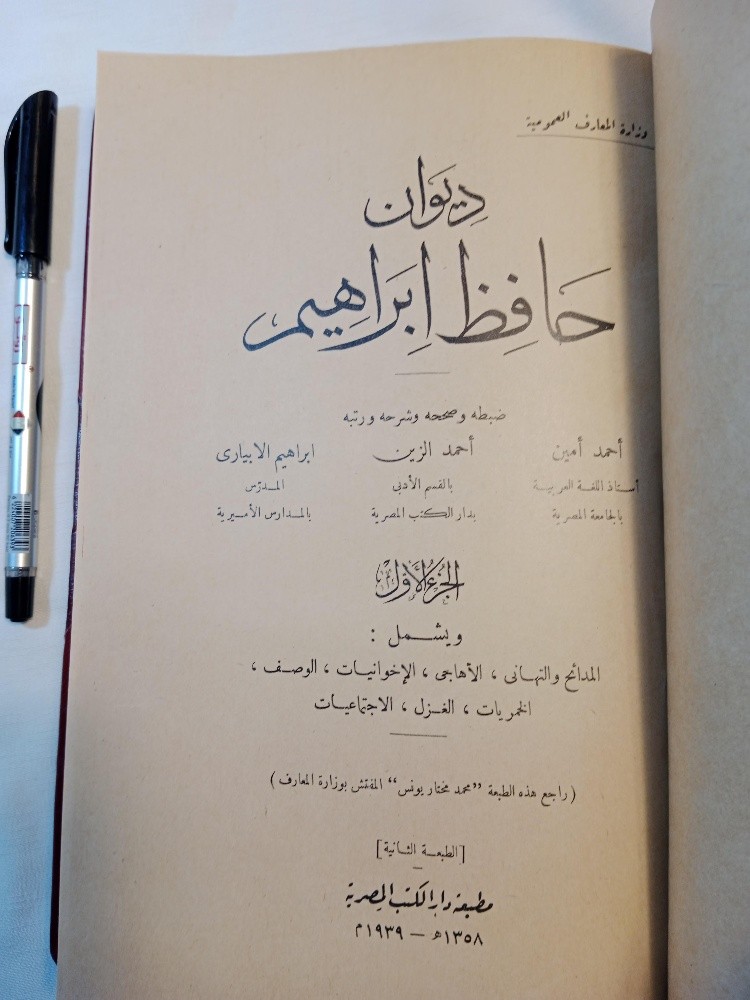 وزارة المعارف العمومية
ديوان
حافظ ابراهيم
ضبطه وصححه وشرحه ورتبه
أحمد أمين أحمد الزين ابراهيم الابيارى
أستاذ اللغة العربية بالقسم الأدبى المدرّس
بالجامعة المصرية بدار الكتب المصرية بالمدارس الأميرية
الجزء الأول
ويشمل :
المدائح والتهانى ، الأهاجى ، الإخوانيات ، الوصف ،
الخمريات ، الغزل ، الاجتماعيات
( راجع هذه الطبعة "محمد مختار يونس" المفتش بوزارة المعارف )
[الطبعة الثانية]
مطبعة دار الكتب المصرية
١٣٥٨ه – ١٩٣٩م